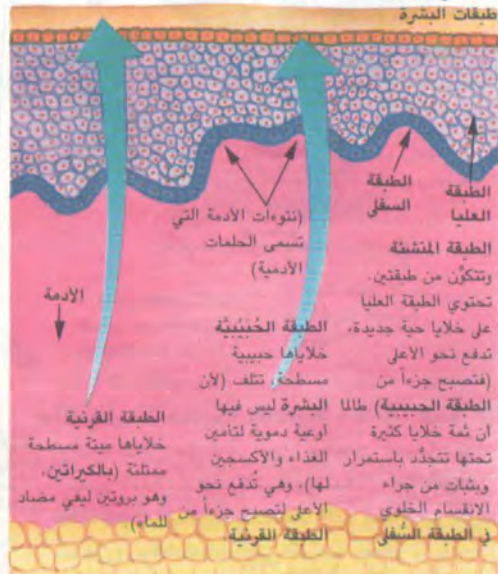 طبقات البشرة
الطبقة
العليا
الطبقة
السفلى
(نتوءات الأدمة التي
تسمى الحلمات
الأدمية)
الأدمة
الطبقة المنشئة
وتتكوَّن من طبقتين.
تحتوي الطبقة العليا
على خلايا حية جديدة،
تدفع نحو الأعلى
(فتصبح جزءاً من
الطبقة الحبيبية) طالما
أن ثمة خلايا كثيرة
تحتها تتجدَّد باستمرار
وبثبات من جراء
الانقسام الخلوي
في الطبقة السُّفلى
الطبقة الحُبَيْبيَّة
خلاياها حبيبية
مسطحة، تتلف (لأن
البشرة ليس فيها
أوعية دموية لتأمين
الغذاء والأكسجين
لها)، وهي تُدفع نحو
الأعلى لتصبح جزءاً من
الطبقة القرنية.
الطبقة القرنية
خلاياها ميتة مسطحة
ممتلئة (بالكيراتين،
وهو بروتين ليفي مضاد
للماء).